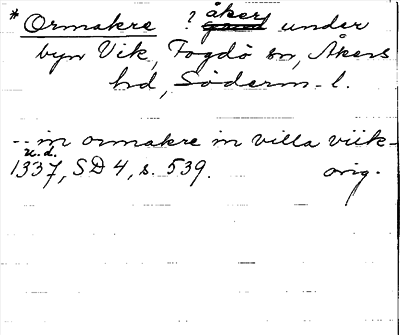 * Ormakre ? åker under
byn Vik, Fogdö sn, Åkers
hd, Söderm. l.
-- in ormakre in villa viik -
u.d.
1337, SD 4, s. 539. orig.